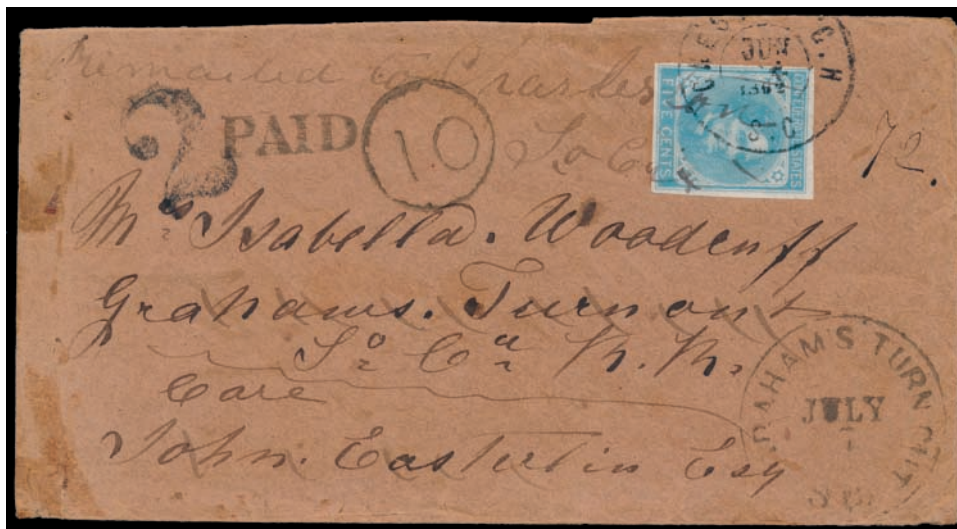 Remailed to Charles
So Ca
2 PAID 10
CONFEDERATE STATES
FIVE CENTS
JUN
1862
C.H
S C
72.
Mrs Isabella. Woodruff
Grahams. Turnout
So Ca R. R.
Care
John. Easterlin Esq
GRAHAMS TURN OUT
JULY
S C